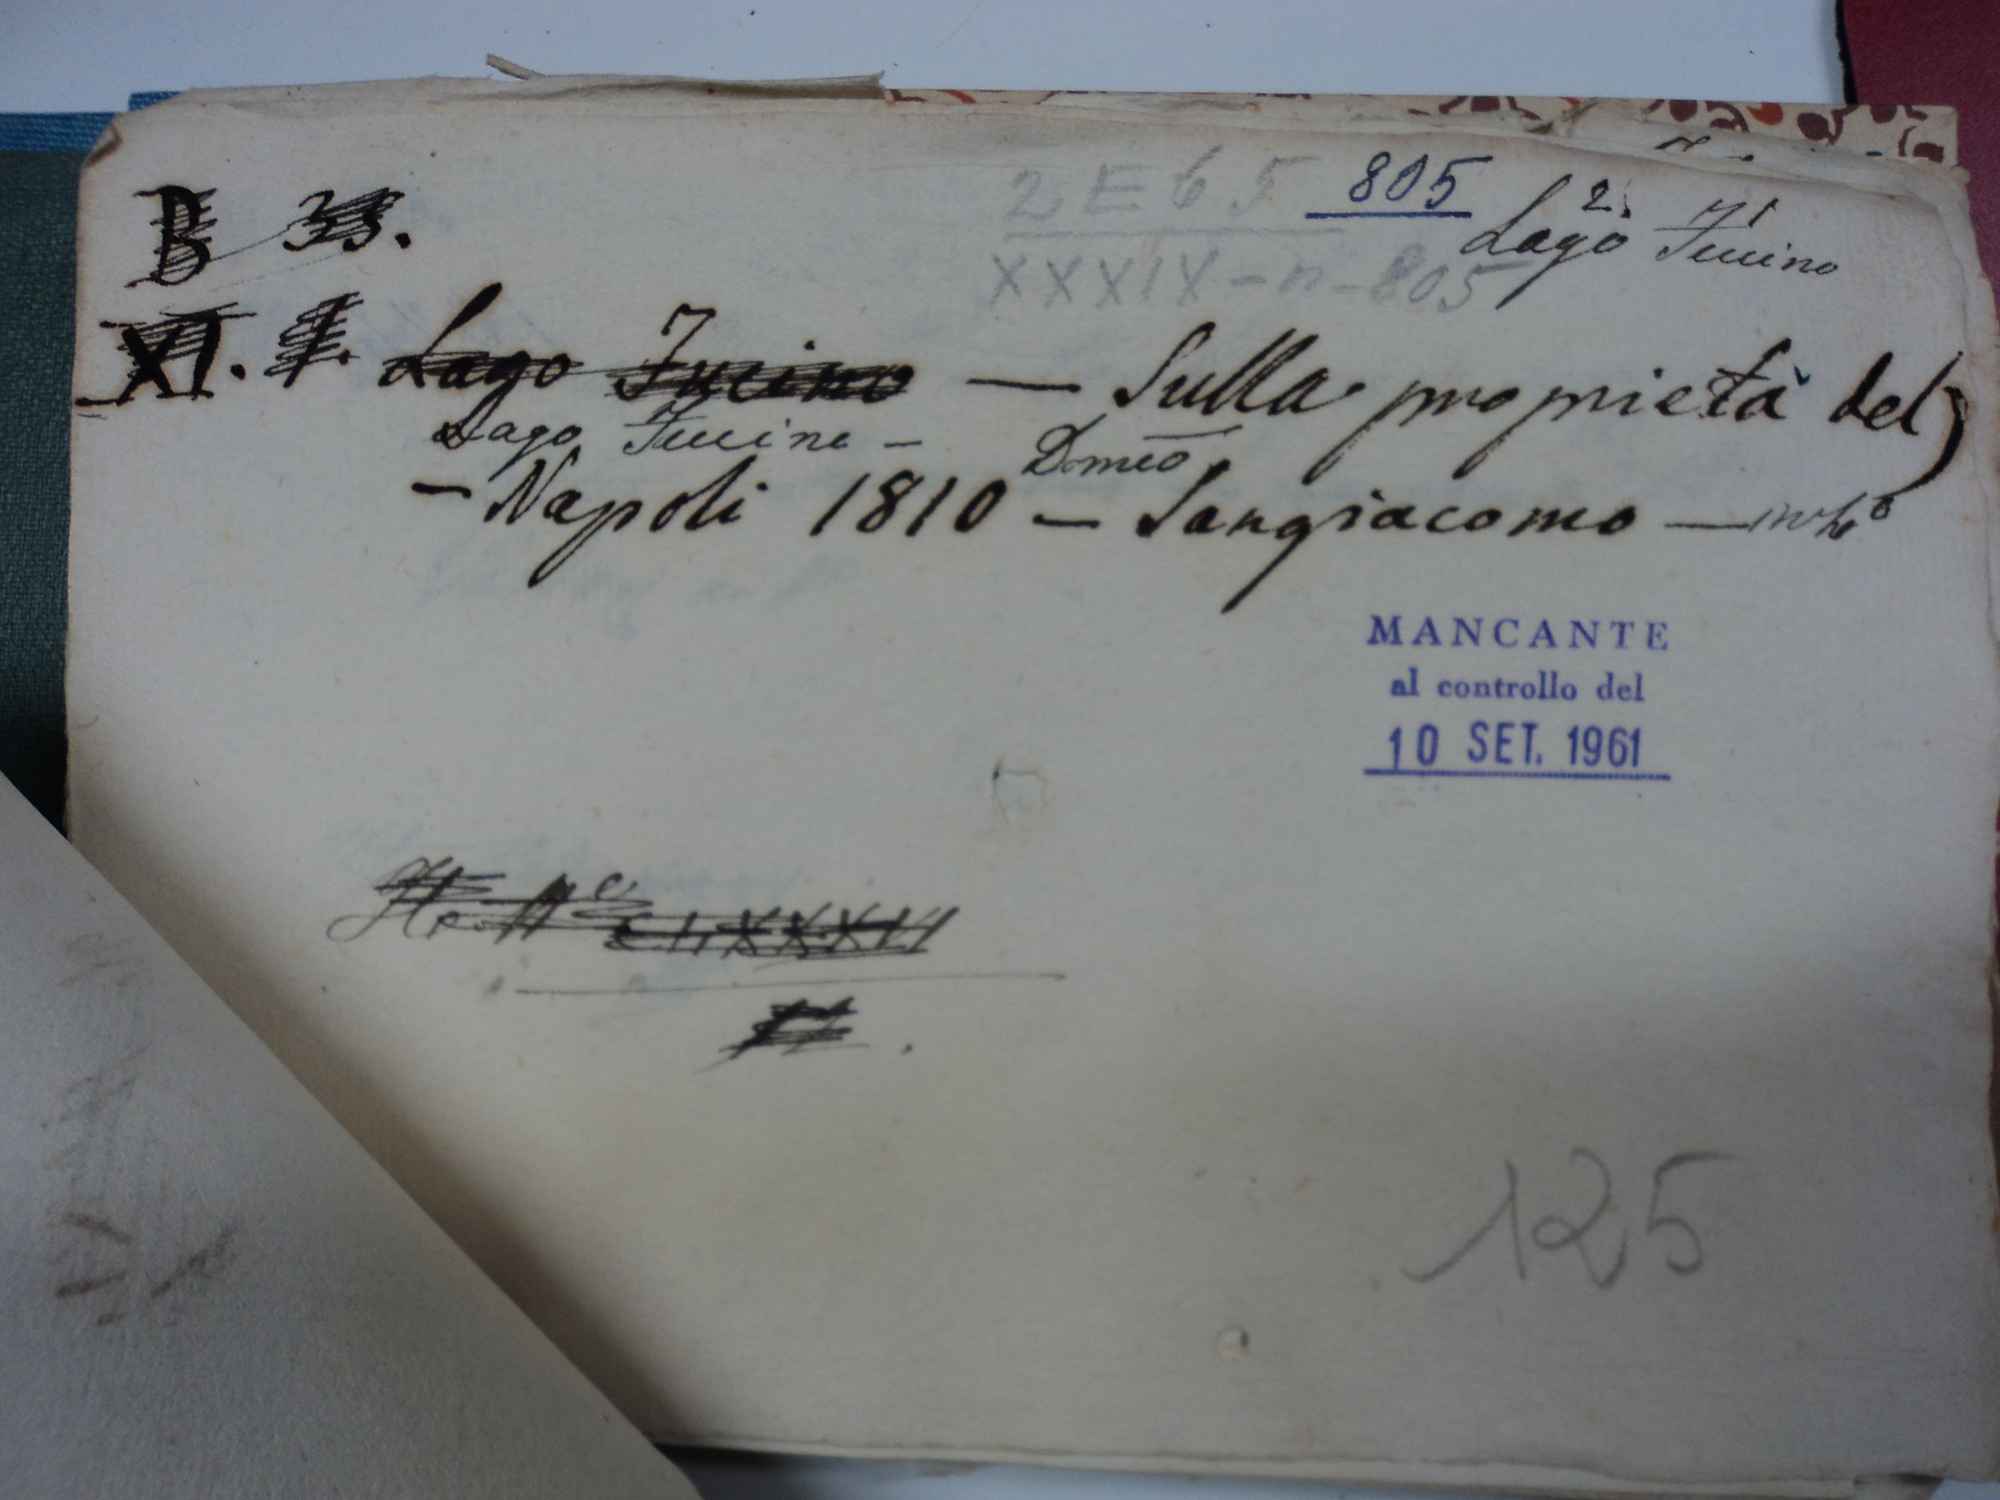 B 33.
2 E 6 5
805
Lago 2° Fucino 1
XXXIX - n - 805
XI. F. Lago Fucino — Sulla proprietà del
Lago Fucino —
Dmco
— Napoli 1810 — Sangiacomo —
MANCANTE
al controllo del
10 SET. 1961
125